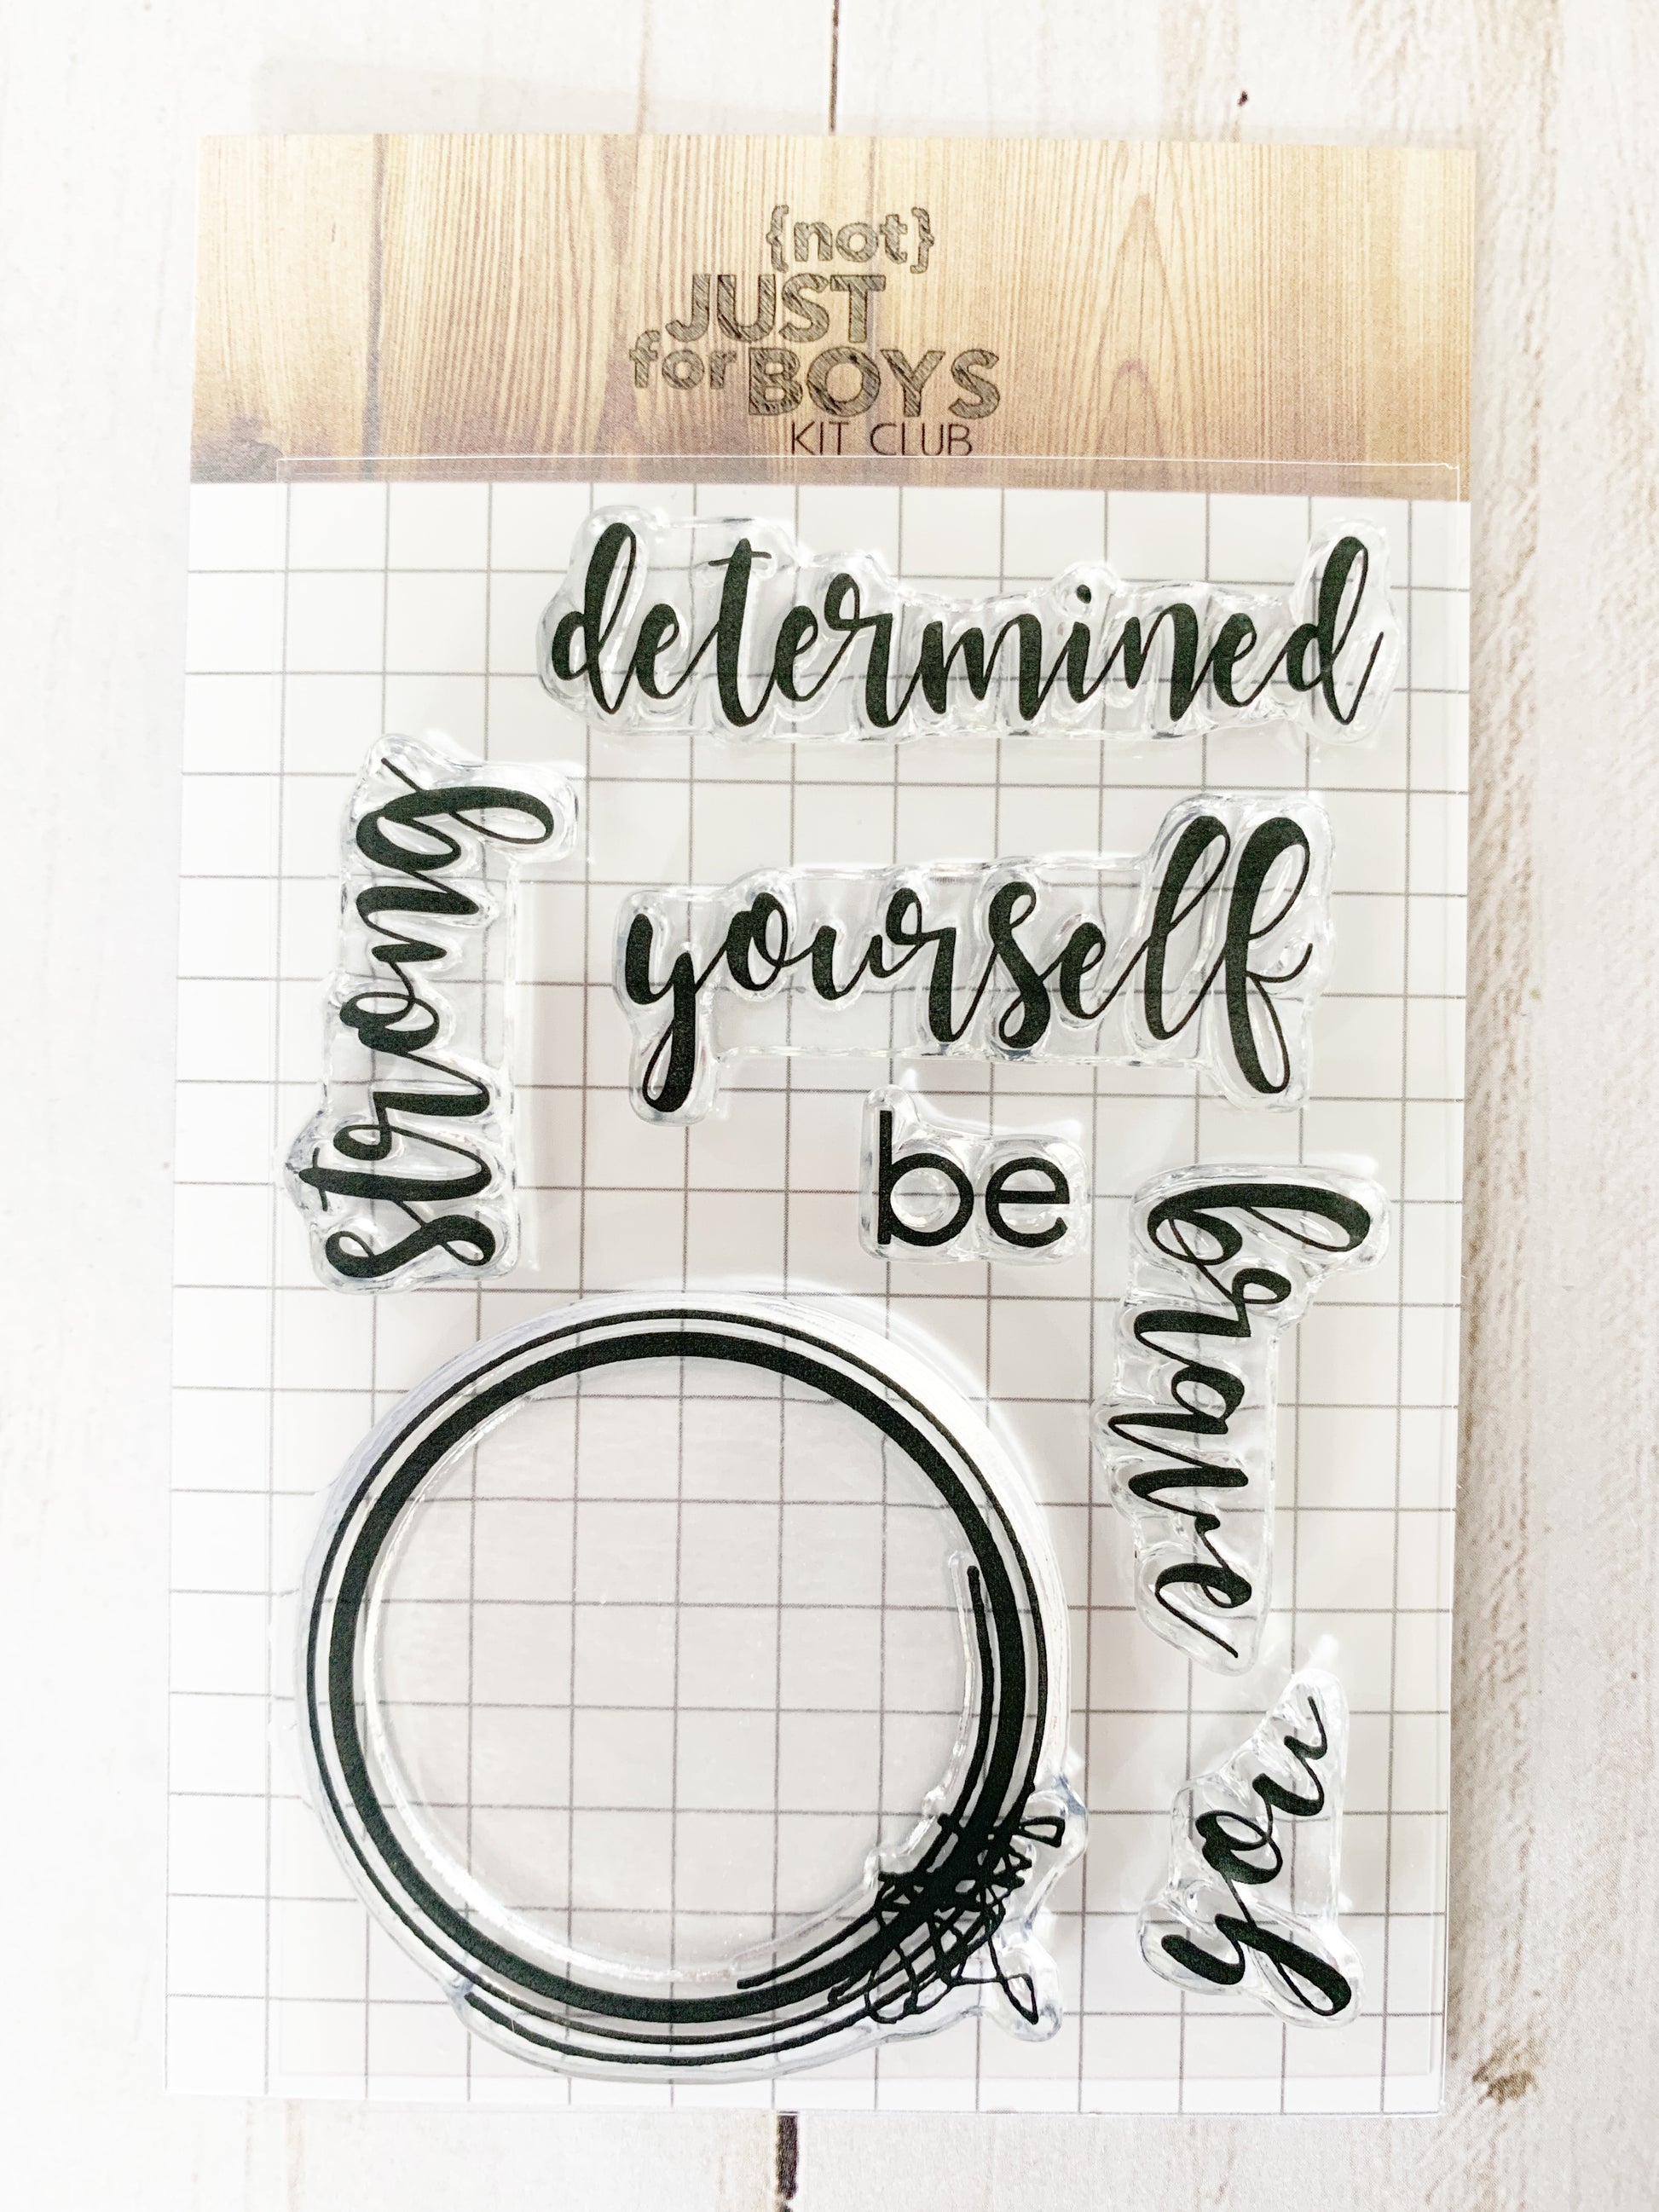 {not}
JUST
for BOYS
KIT CLUB
determined
strong
yourself
be
brave
you